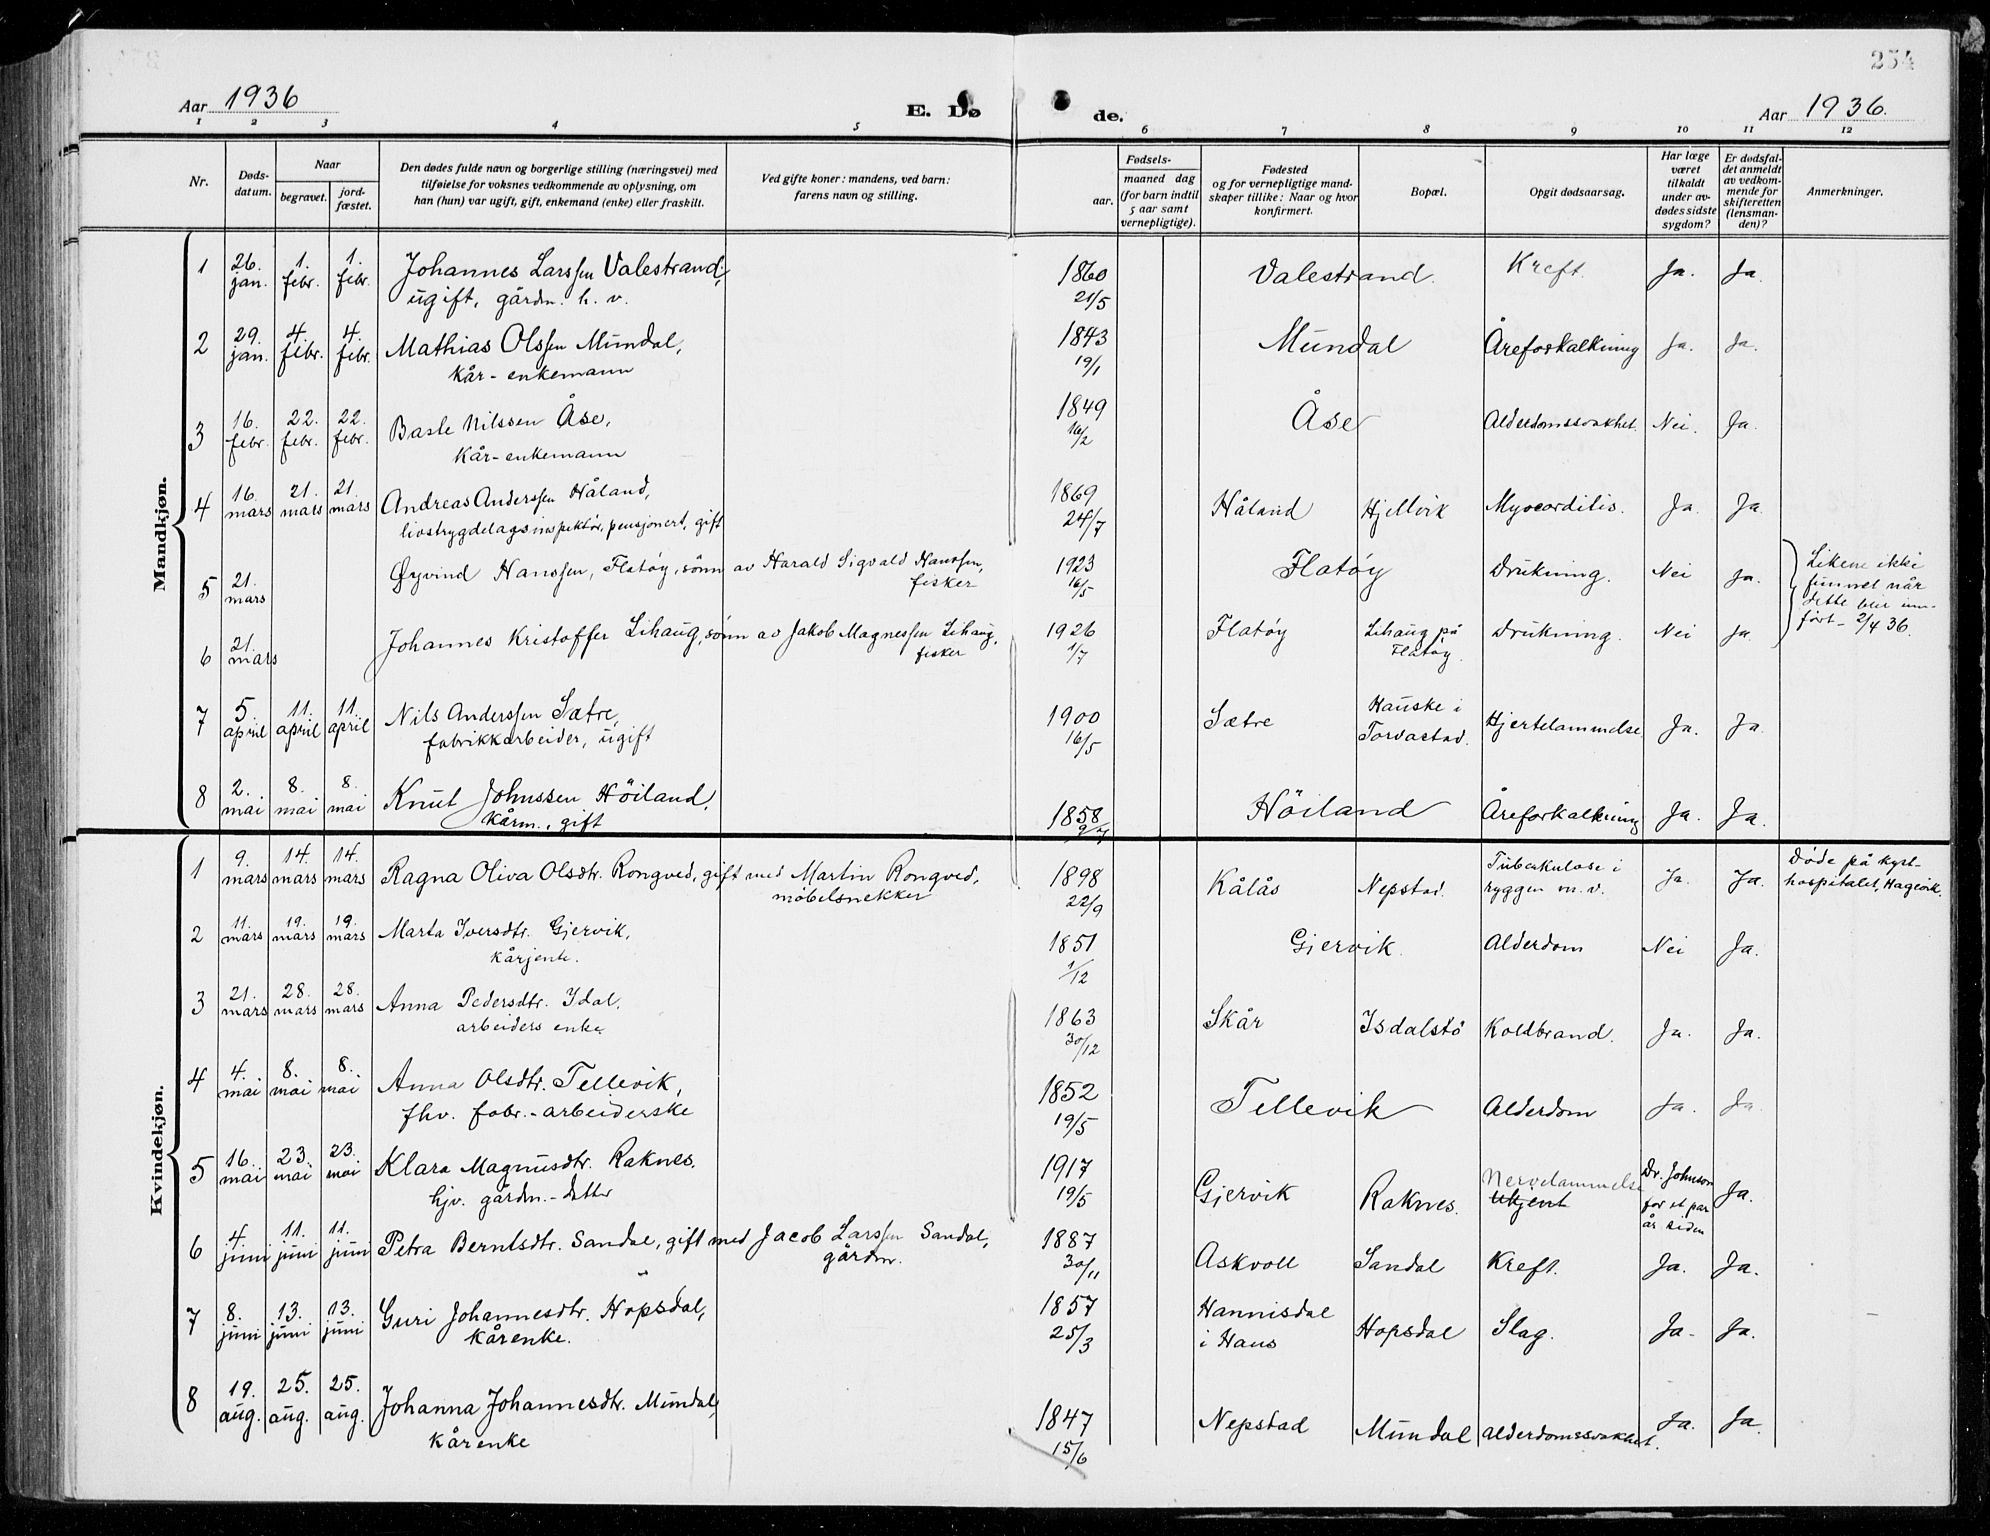 254
Aar 1936
E. Dø de.
Aar 1936.
1 2 3 4 5 6 7 8 9 10 11 12
Nr.
Døds-
datum.
Naar
begravet.
jord-
fæstet.
Den dødes fulde navn og borgerlige stilling (næringsvei) med
tilføielse for voksnes vedkommende av oplysning, om
han (hun) var ugift, gift, enkemand (enke) eller fraskilt.
Ved gifte koner: mandens, ved barn:
farens navn og stilling.
Fødsels-
aar.
maaned dag
(for barn indtil
5 aar samt
vernepligtige).
Fødested
og for vernepligtige mand-
skaper tillike: Naar og hvor
konfirmert.
Bopæl.
Opgit dødsaarsag.
Har læge
været
tilkaldt
under av-
dødes sidste
sygdom?
Er dødsfal-
det anmeldt
av vedkom-
mende for
skifteretten
(lensman-
den)?
Anmerkninger.
Mandkjøn.
1 26. jan. 1. febr. 1. febr. Johannes Larssen Valestrand, 1860 Valestrand. Kreft. Ja. Ja.
ugift, gårdm. h. v. 21/5
2 29. jan. 4. febr. 4. febr. Mathias Olssen Mundal, 1843 Mundal Åreforkalkning Ja. Ja.
Kår-enkemann 19/1
3 16. febr. 22. febr. 22. febr. Baste Nilssen Åse, 1849 Åse Alderdomssvakhet. Nei. Ja.
Kår-enkemann 16/2
4 16. mars 21. mars 21. mars Andreas Anderssen Håland, 1869 Håland Hjellvik Myocarditis. Ja. Ja.
livstrygdelagsinspektør, pensjonert, gift 24/7
5 21. mars Øyvind Hanssen, Flatøy, sønn av Harald Sigvald Hanssen, 1923 Flatøy Drukning. Nei Ja.
fisker 16/5
Likene ikke
funnet når
dette blir inn-
ført - 2/4 36.
6 21. mars Johannes Kristoffer Lihaug, sønn av Jakob Magnessen Lihaug, 1926 Flatøy Lihaug på Drukning. Nei Ja.
fisker 1/7 Flatøy.
7 5 april 11. april 11. april Nils Anderssen Sætre, 1900 Sætre Hauske i Hjertelammelse Ja. Ja.
fabrikkarbeider, ugift 16/5 Torvastad.
8 2. mai 8. mai 8. mai Knut Johnssen Höiland, 1858 Höiland Åreforkalkning Ja. Ja.
Kårm., gift
Kvindekjøn.
1 9. mars 14. mars 14. mars Ragna Oliva Olsdtr. Rongved, gift med Martin Rongved, 1898 Kålås Nepstad. Tuberkulose i Ja. Ja. Døde på kyst-
møbelsnekker 22/9 ryggen m. v. hospitalet, Hagevik.
2 11. mars 19. mars 19. mars Marta Iversdtr. Gjervik, 1851 Gjervik. Alderdom Nei Ja.
Kårjente. 1/12
3 21. mars 28. mars 28. mars Anna Pedersdtr. Idal. 1863 Skår Isdalstö Koldbrand. Ja. Ja.
arbeiders enke 30/12
4 4. mai 8. mai 8. mai Anna Olsdtr. Tellevik, 1852 Tellevik Alderdom Ja. Ja
fhv. fabr.-arbeiderske 19/5
5 16. mai 23. mai 23. mai Klara Magnusdtr. Raknes. 1917 Gjervik Raknes. Nervelammelse Dr. Johnson Ja.
hjv. gårdm.-datter 19/5 Ukjent for et par
år siden
6 4. juni 11. juni 11. juni Petra Berntsdtr. Sandal, gift med Jacob Larssen Sandal, 1887 Askvoll Sandal Kreft. Ja. Ja.
gårdm. 30/11
7 8. juni 13. juni 13. juni Guri Johannesdtr. Hopsdal, 1857 Hannisdal Hopsdal Slag. Ja- Ja.
Kårenke. 25/3 i Haus
8 19. aug. 25. aug. 25. aug. Johanna Johannesdtr. Mundal, 1847 Nepstad Mundal Alderdomssvakhet. Ja. Ja
Kårenke 15/6